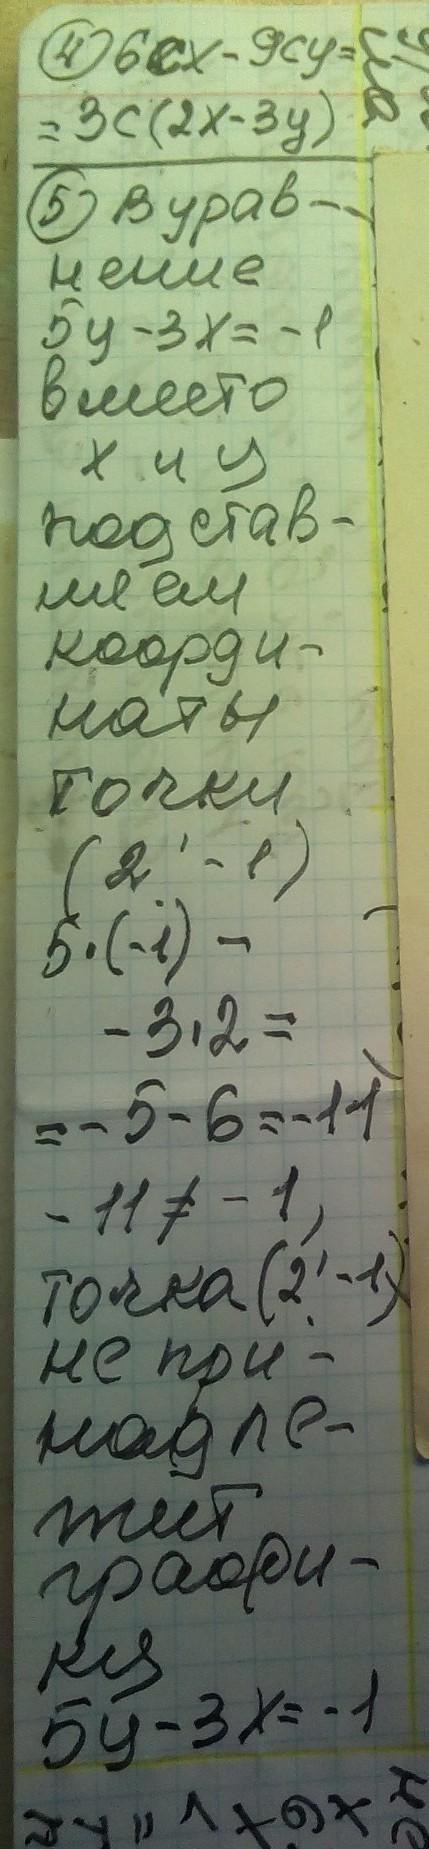 ④ 6cx - 9cy =
= 3c(2x - 3y)
⑤ В урав-
нение
5y - 3x = -1
вместо
x и y
подстав-
ляем
коорди-
наты
точки
(2; -1)
5·(-1) -
- 3·2 =
= -5 - 6 = -11
-11 ≠ -1,
точка (2; -1)
не при-
надле-
жит
графи-
ку
5y - 3x = -1